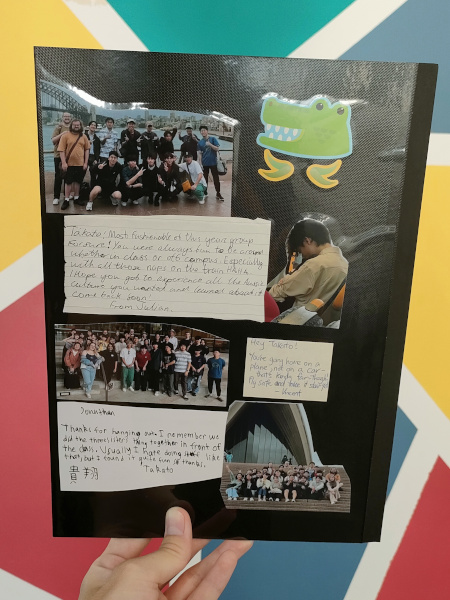 Takoto! Most fashionable of this years group
for sure! You were always fun to be around
whether in class or off campus. Especially
with all those naps on the train HAHA
I Hope you got to experience all the Aussie
culture you wanted and learned about it
Come back soon!
From Julian
Hey Takoto!
You're going home on a
plane, not on a car -
that's kinda far though.
Fly safe and take it easy!
- Vincent
Jonathan
Thanks for hanging out. I remember we
did the three sisters thing together in front of
the cliff. Usually I hate doing stuff like
that, but I found it quite fun so thanks.
貴翔 Takato